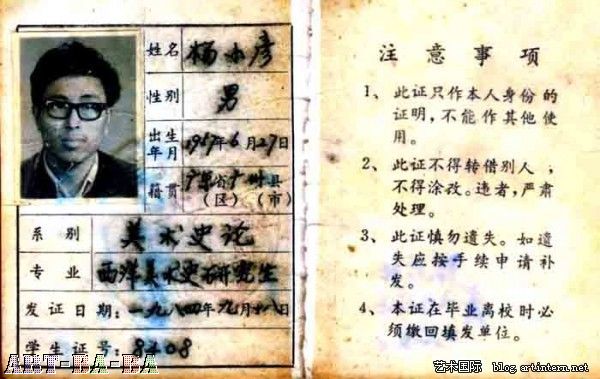 姓名 杨小彦
性别 男
出生年月 1957年6月27日
籍贯 广东省广州县
(区) (市)
系别 美术史论
专业 西洋美术史研究生
发证日期:一九八四年九月十八日
学生证号:8408
注意事项
1、此证只作本人身份的
证明,不能作其他使
用。
2、此证不得转借别人,
不得涂改。违者,严肃
处理。
3、此证慎勿遗失。如遗
失应按手续申请补
发。
4、本证在毕业离校时必
须缴回填发单位。
ART-BA-BA
艺术国际 blog.artintern.net